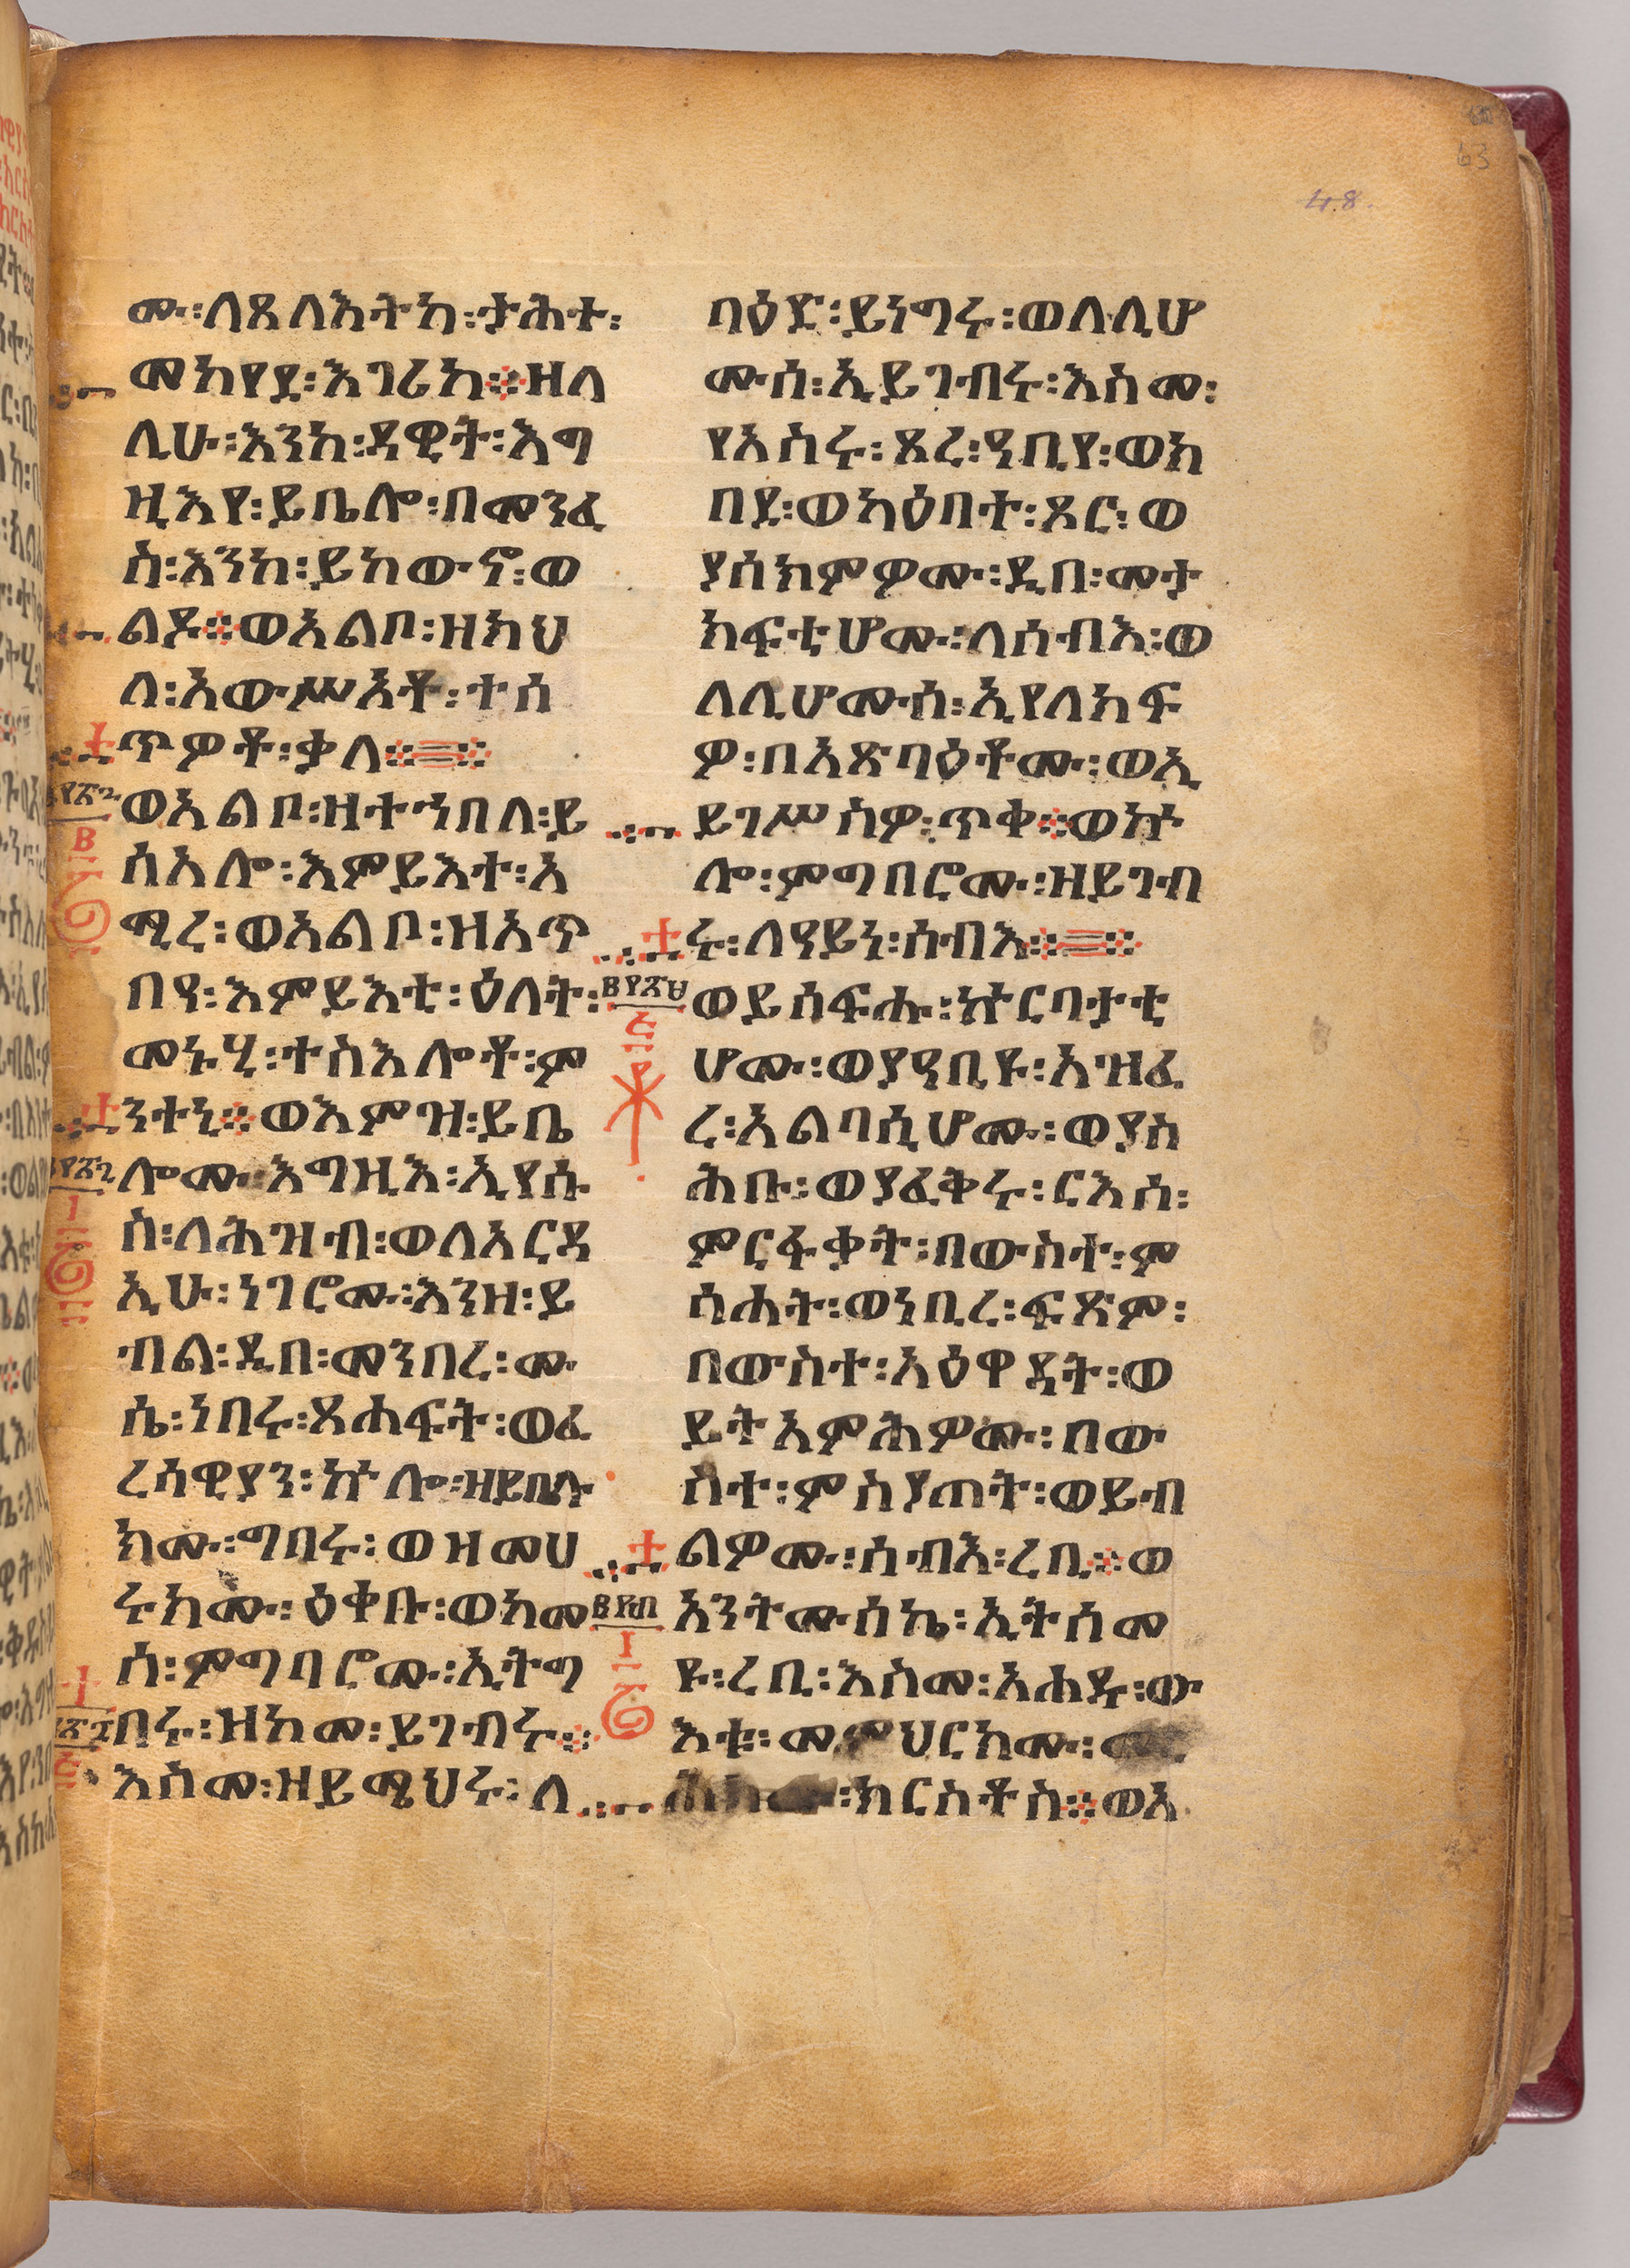 63
48
ሙ፡ለጸላእትከ፡ታሕተ፡
መከየደ፡እገሪከ፨ዘለ
ሊሁ፡እንከ፡ዳዊት፡እግ
ዚእየ፡ይቤሎ፡በመንፈ
ስ፡እንከ፡ይከውኖ፡ወ
ልዶ፨ወአልቦ፡ዘክህ
ለ፡አውሥኦቶ፡ተሰ
ጥዎቶ፡ቃለ፨
ወአልቦ፡ዘተኀበለ፡ይ
ሰአሎ፡እምይእተ፡አ
ሚረ፡ወአልቦ፡ዘአጥ
በየ፡እምይእቲ፡ዕለት፡
መኑሂ፡ተስእሎቶ፡ም
ንተኒ፨ወእምዝ፡ይቤ
ሎሙ፡እግዚእ፡ኢየሱ
ስ፡ለሕዝብ፡ወለአርዳ
ኢሁ፡ነገሮሙ፡እንዘ፡ይ
ብል፡ዲበ፡መንበረ፡ሙ
ሴ፡ነበሩ፡ጸሐፍት፡ወፈ
ረሳዊያን፡ኵሎ፡ዝይቤሉ
ክሙ፡ግበሩ፡ወዝመሀ
ሩክሙ፡ዕቀቡ፡ወከመ
ሰ፡ምግባሮሙ፡ኢትግ
በሩ፡ዝከመ፡ይገብሩ፨
እስመ፡ዝይሜህሩ፡ለ
ባዕድ፡ይነግሩ፡ወለሊሆ
ሙሰ፡ኢይገብሩ፡እስመ፡
የአስሩ፡ጾረ፡ዓቢየ፡ወክ
በደ፡ወካዕበተ፡ጾር፡ወ
ያሰክምዎሙ፡ዲበ፡መታ
ክፍቲሆሙ፡ለሰብእ፡ወ
ለሊሆሙሰ፡ኢየለክፍ
ዎ፡በአጽባዕቶሙ፡ወኢ
ይገሥስዎ፡ጥቀ፨ወኵ
ሎ፡ምግበሮሙ፡ዘይገብ
ሩ፡ለዓይነ፡ሰብእ፨
ወይሰፍሑ፡ኵርባታቲ
ሆሙ፡ወያዓቢዩ፡አዝፈ
ረ፡አልባሲሆሙ፡ወያስ
ሕቡ፡ወያፈቅሩ፡ርእሰ፡
ምርፋቃት፡በውስተ፡ም
ሳሐት፡ወነቢረ፡ፍጽም፡
በውስተ፡አዕዋዳት፡ወ
ይትአምሕዎሙ፡በው
ስተ፡ምስያጠት፡ወይብ
ልዎሙ፡ሰብእ፡ረቢ፨ወ
አንትሙሰኬ፡ኢትሰመ
ዩ፡ረቢ፡እስመ፡አሐዱ፡ው
እቱ፡መምህርክሙ፡
ክርስቶስ፨ወአ